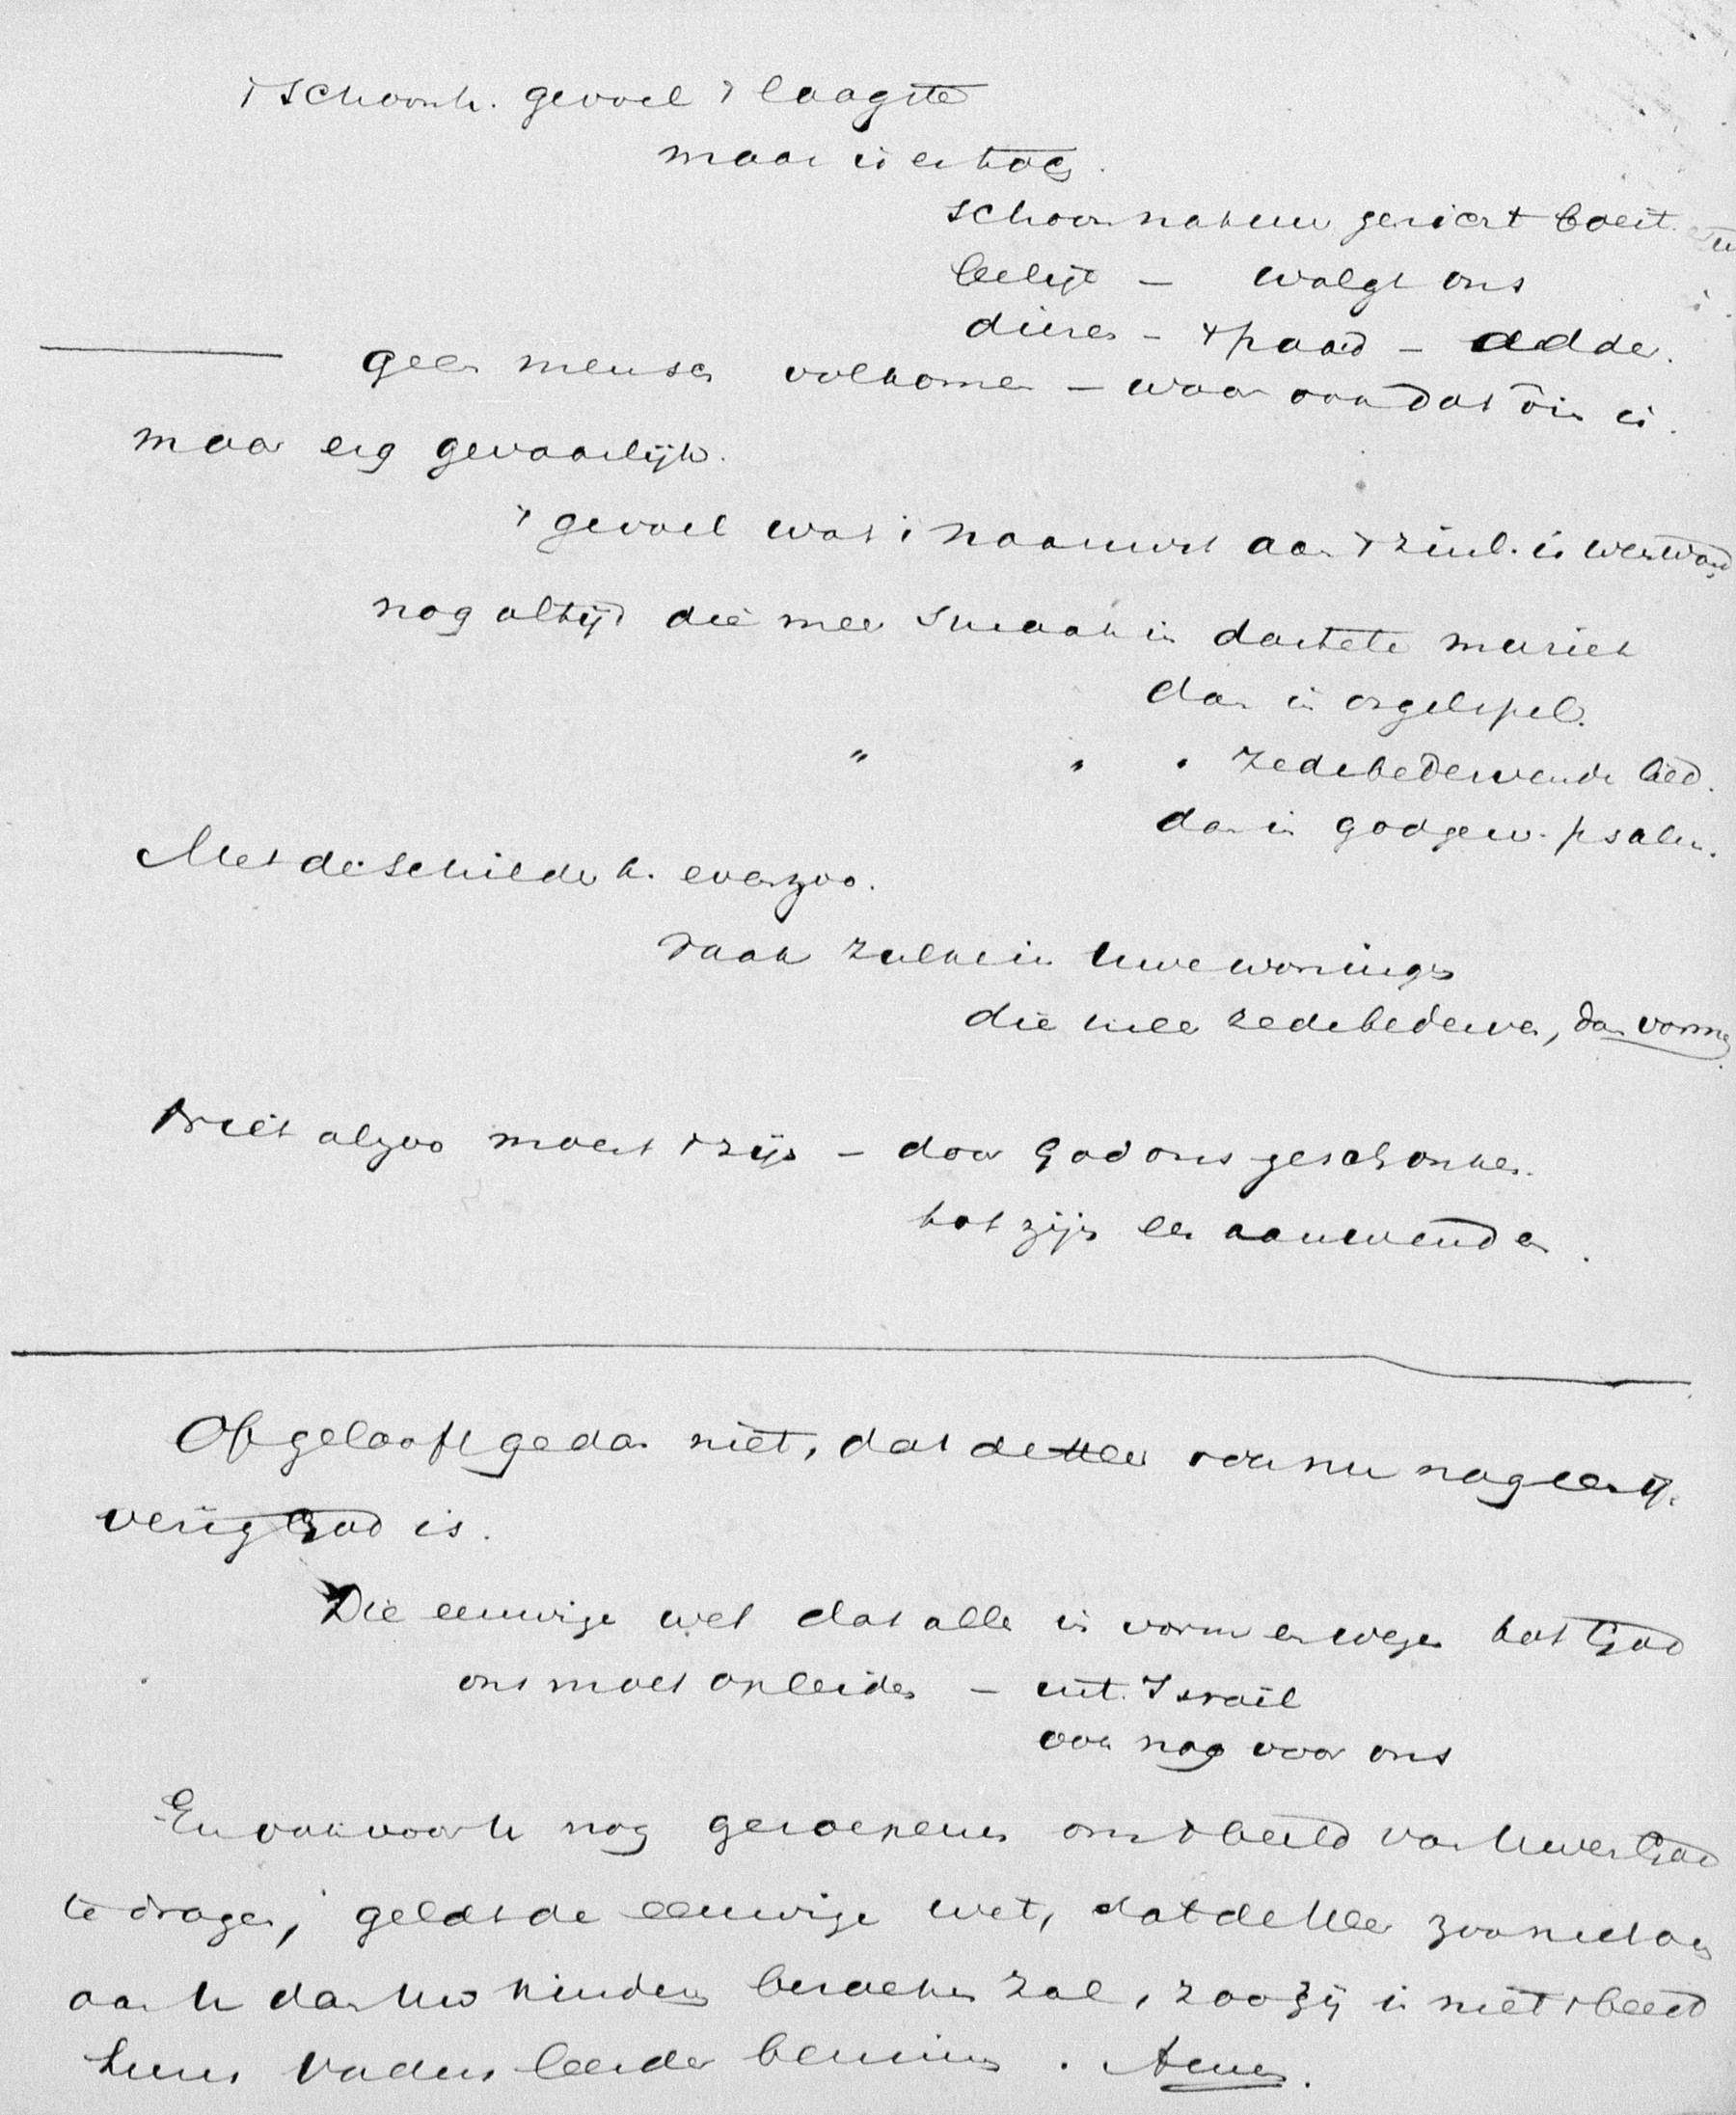 't schoonh. gevoel 't laagste
maar is er toch.
schoon natuur gezicht boeit
leelijk — walgt ons
dieren — 't paard — adder.
geen mensch volkomen — waar ook dat in is.
maar erg gevaarlijk.
't gevoel wat 't naauwst aan 't zinl. is verwand
nog altijd die meer smaak in dartele muziek
dan in orgelspel.
" " " zedebedervende lied.
dan in godgew. psalm.
Met de schilder k. evenzoo.
vaak zulke in Uwe woningen
die meer zedebederven, dan vormen
Niet alzoo moest 't zijn — door God ons geschonken
tot zijn eer aanwenden.
Of gelooft ge dan niet, dat de Heer ook nu nog een ij-
verig God is.
Die eeuwige wet dat alle in vorm en wezen tot God
ons moet opleiden — uit. Israël
ook nog voor ons
En ook voor U nog geroepenen om 't beeld van Uwen God
te dragen, geldt de eeuwige wet, dat de Heer zoo niet aan
aan U dan Uw kinderen bezoeken zal, zoo zij in niet 't beeld
huns Vaders leerden beminnen. Amen.